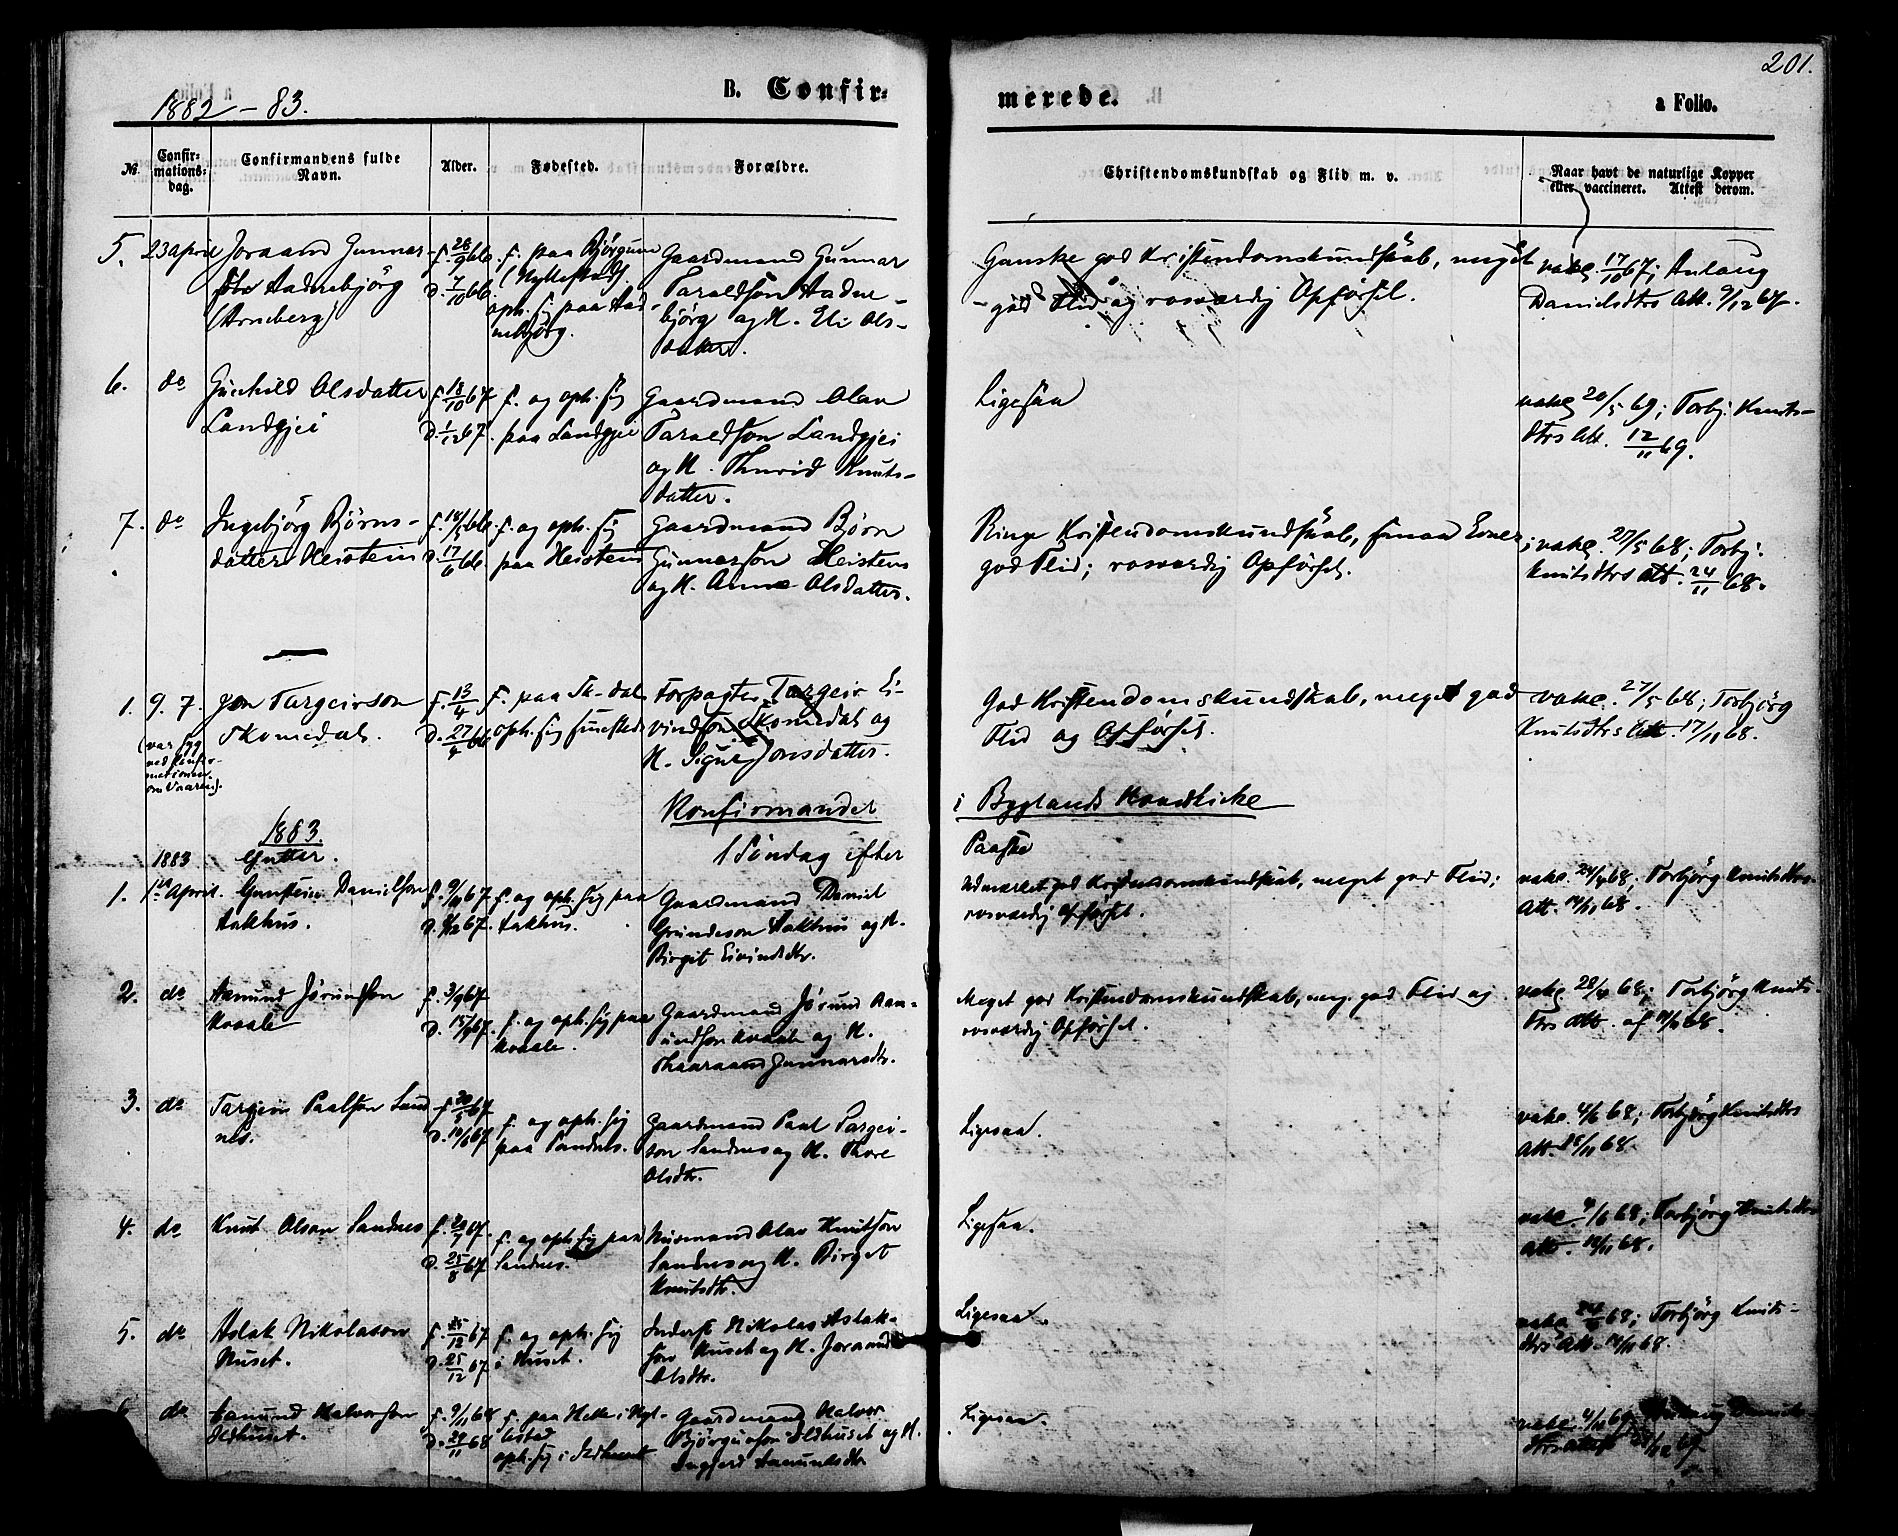 201.
1882-83.
B. Confir-
merede.
a Folio.
№
Confir-
mations-
dag.
Confirmandens fulde
Navn.
Alder.
Fødested.
Forældre.
Christendomskundskab og Flid m. v.
Naar havt de naturlige Kopper
eller vaccineret. Attest derom.
5. 23 april Joraand Gunnars-
dtr Aadnebjörg
(Arneberg)
f. 28/9 66.
d. 7/10 66
f. paa Bjørgum
oph. sig paa Aad-
nebjørg.
Gaardmand Gunnar
Taraldson Aadne-
bjørg og H. Eli Ols-
datter.
Ganske god Kristendomskundskab, meget
god Flid og rosværdig Opførsel.
vakc 17/10 67; Anlaug
Danielsdtrs Att. 9/12 67.
6. do Gunhild Olsdatter
Landgjei
f. 18/10 67
d. 1/12 67.
f. og oph. sig
paa Landgjei
Gaardmand Olav
Taraldson Landgjei
og H. Thurid Knuts-
datter.
Ligesaa
vakc 20/5 69; Torbj. Knuts-
dtrs Att. 12/11 69.
7. do Ingebjörg Björns-
datter Heistein
d. 17/6 66
f. og oph. sig
paa Heistein
Gaardmand Børn
Gunnarson Heistein
og H. Anne Olsdatter.
Ringe Kristendomskundskab, smaa Evner,
god Flid; rosværdig Opførsel.
vakc. 27/5 68; Torbj.
Knutsdtrs Att. 24/11 68.
1. 9. 7. Jon Targeirson
Skomedal.
(var syg
ved Konfir-
mationen
om Vaaren).
f. 13/4
d. 27/4 66
f. paa Sk-dal
oph. sig sunesteds
Forpagter Targeir Ei-
vindson Skomedal og
H. Signe Jonsdatter.
God Kristendomskundskab, meget god
Flid og Opførsel.
vakc. 27/5 68; Torbjörg
Knutsdtrs Att. 17/11 68.
Konfirmander
i Byglands Hovedkirke
1883.
Gutter.
1 Söndag efter
Paaske
1883
1. 1ste April. Gunstein Danielson
Aakhus.
f. 9/11 67.
d. 8/12 67.
f. og oph. sig paa
Aakhus.
Gaardmand Daniel
Grundeson Aakhus og H.
Birgit Eivindsdtr.
Udmærket god Kristendomskundskab, meget god Flid;
rosværdig Opførsel.
vakc. 24/4 68; Torbjörg Knutsdtrs
Att. 14/11 68.
2. do Aamund Jørundson
Kvaale
f. 3/9 67
d. 15/9 67.
f. og oph. sig paa
Kvaale.
Gaardmand Jørund Aam-
undson Kvaale og H.
Thaaraand Gunnarsdtr.
Meget god Kristendomskundskab, meg. god Flid og
rosværdig Opførsel.
vakc 28/4 68; Torbjörg Knuts-
dtrs Att. af 14/11 68.
3. do Targeir Paalson Sand
nes.
f. 20/5 67
d. 10/6 67
f. og oph. sig
paa Sandnes.
Gaardmand Paal Targei-
son Sandnes og H. Thore
Olsdtr.
Ligesaa.
vakc. 4/6 68; Torbjörg Knutsdtrs
Att. 18/11 68.
4. do Knut Olson Sandnes
d. 25/8 67
f. og oph. sig paa
Sandnes.
Husmand Olav Knutson
Sandnes og H. Birget
Knutsdtr.
Ligesaa.
vakc. 4/6 68; Torbjörg Knutsdtrs
Att. 14/11 68.
5. do Aslak Nikolason
Huset.
f. 25/12 67
d. 25/12 67
f. og oph. sig
i Huset.
Inderst Nikolas Aslak-
son Huset og H. Joraand
Olsdtr.
Ligesaa.
68; Torbjörg Knuts-
dtrs Att. 14/11 68.
do Aamund Halvorson
Jldhuset.
f. 9/11 68
d. 29/11 68
oph. sig i Jldhuset
Gaardmand Halvor
Björgulfson Jldhuset og H.
Ingjerd Aamundsdtr
Ligesaa.